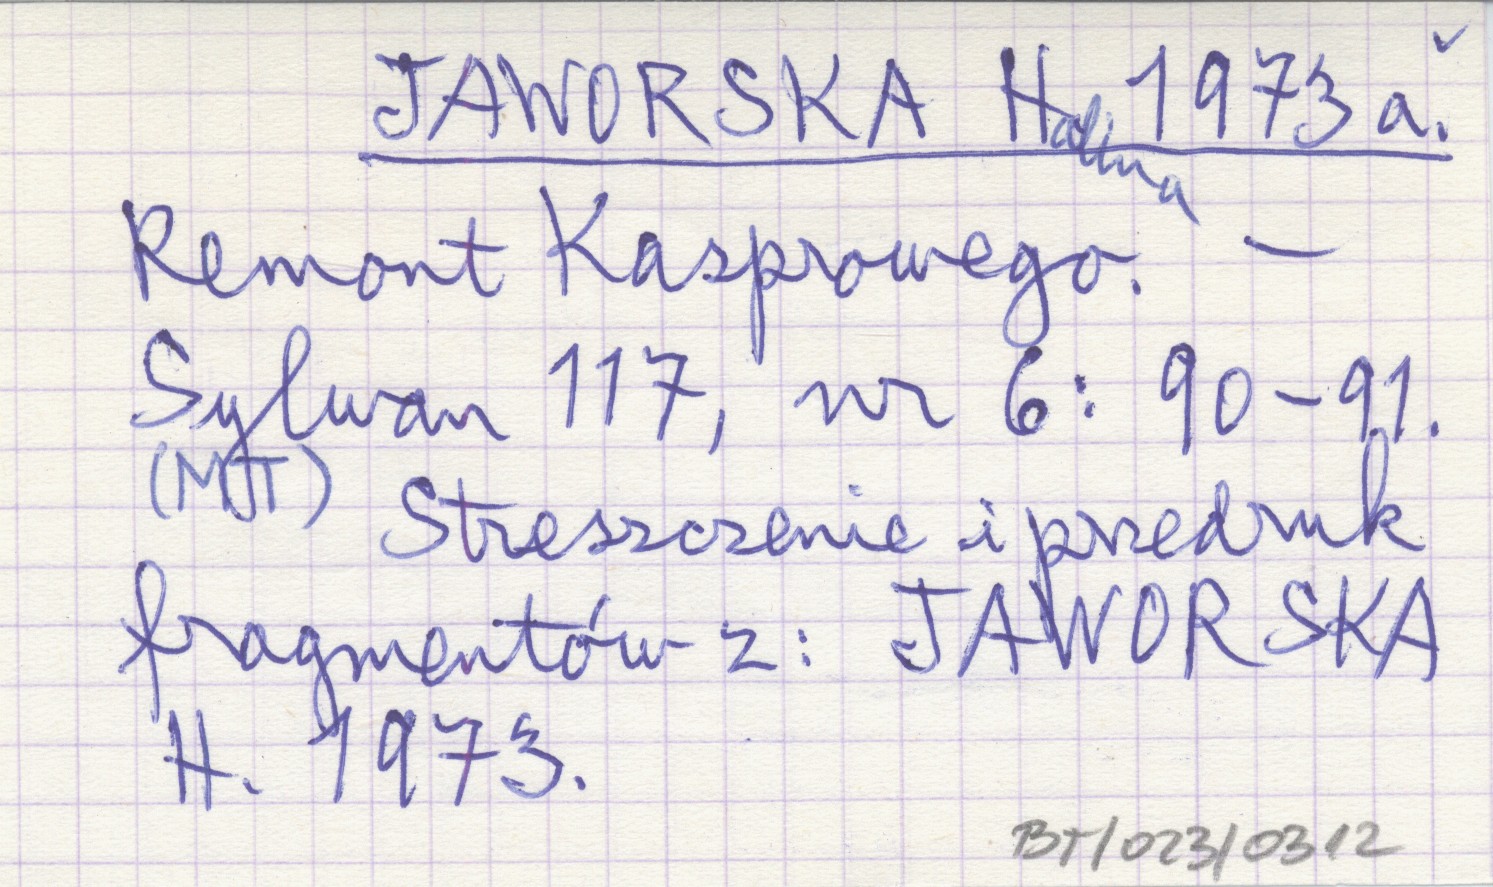 JAWORSKA Halina 1973a.
Remont Kasprowego. –
Sylwan 117, nr 6: 90–91.
(MJT) Streszczenie i przedruk
fragmentów z: JAWORSKA
H. 1973.
BT/023/0312